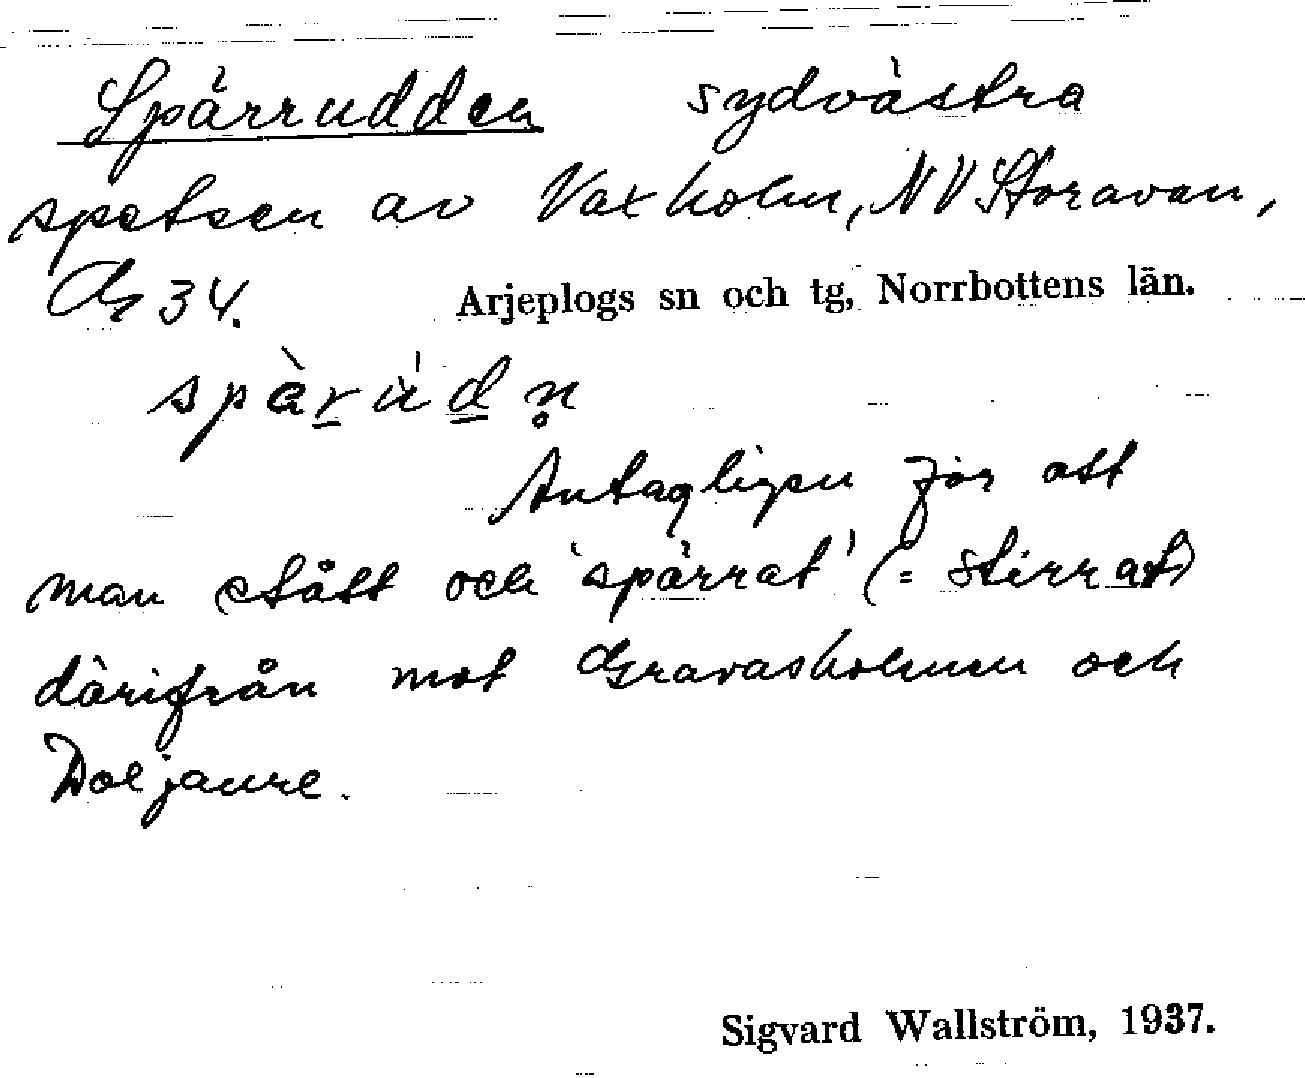 Spärrudden sydvästra
spetsen av Vaxholm, NV Storavan,
G 34. Arjeplogs sn och tg, Norrbottens län.
spàrúdn̥
Antagligen för att
man stått och 'spärrat' (= stirrat)
därifrån mot Gravasholmen och
Doljaure.
Sigvard Wallström, 1937.